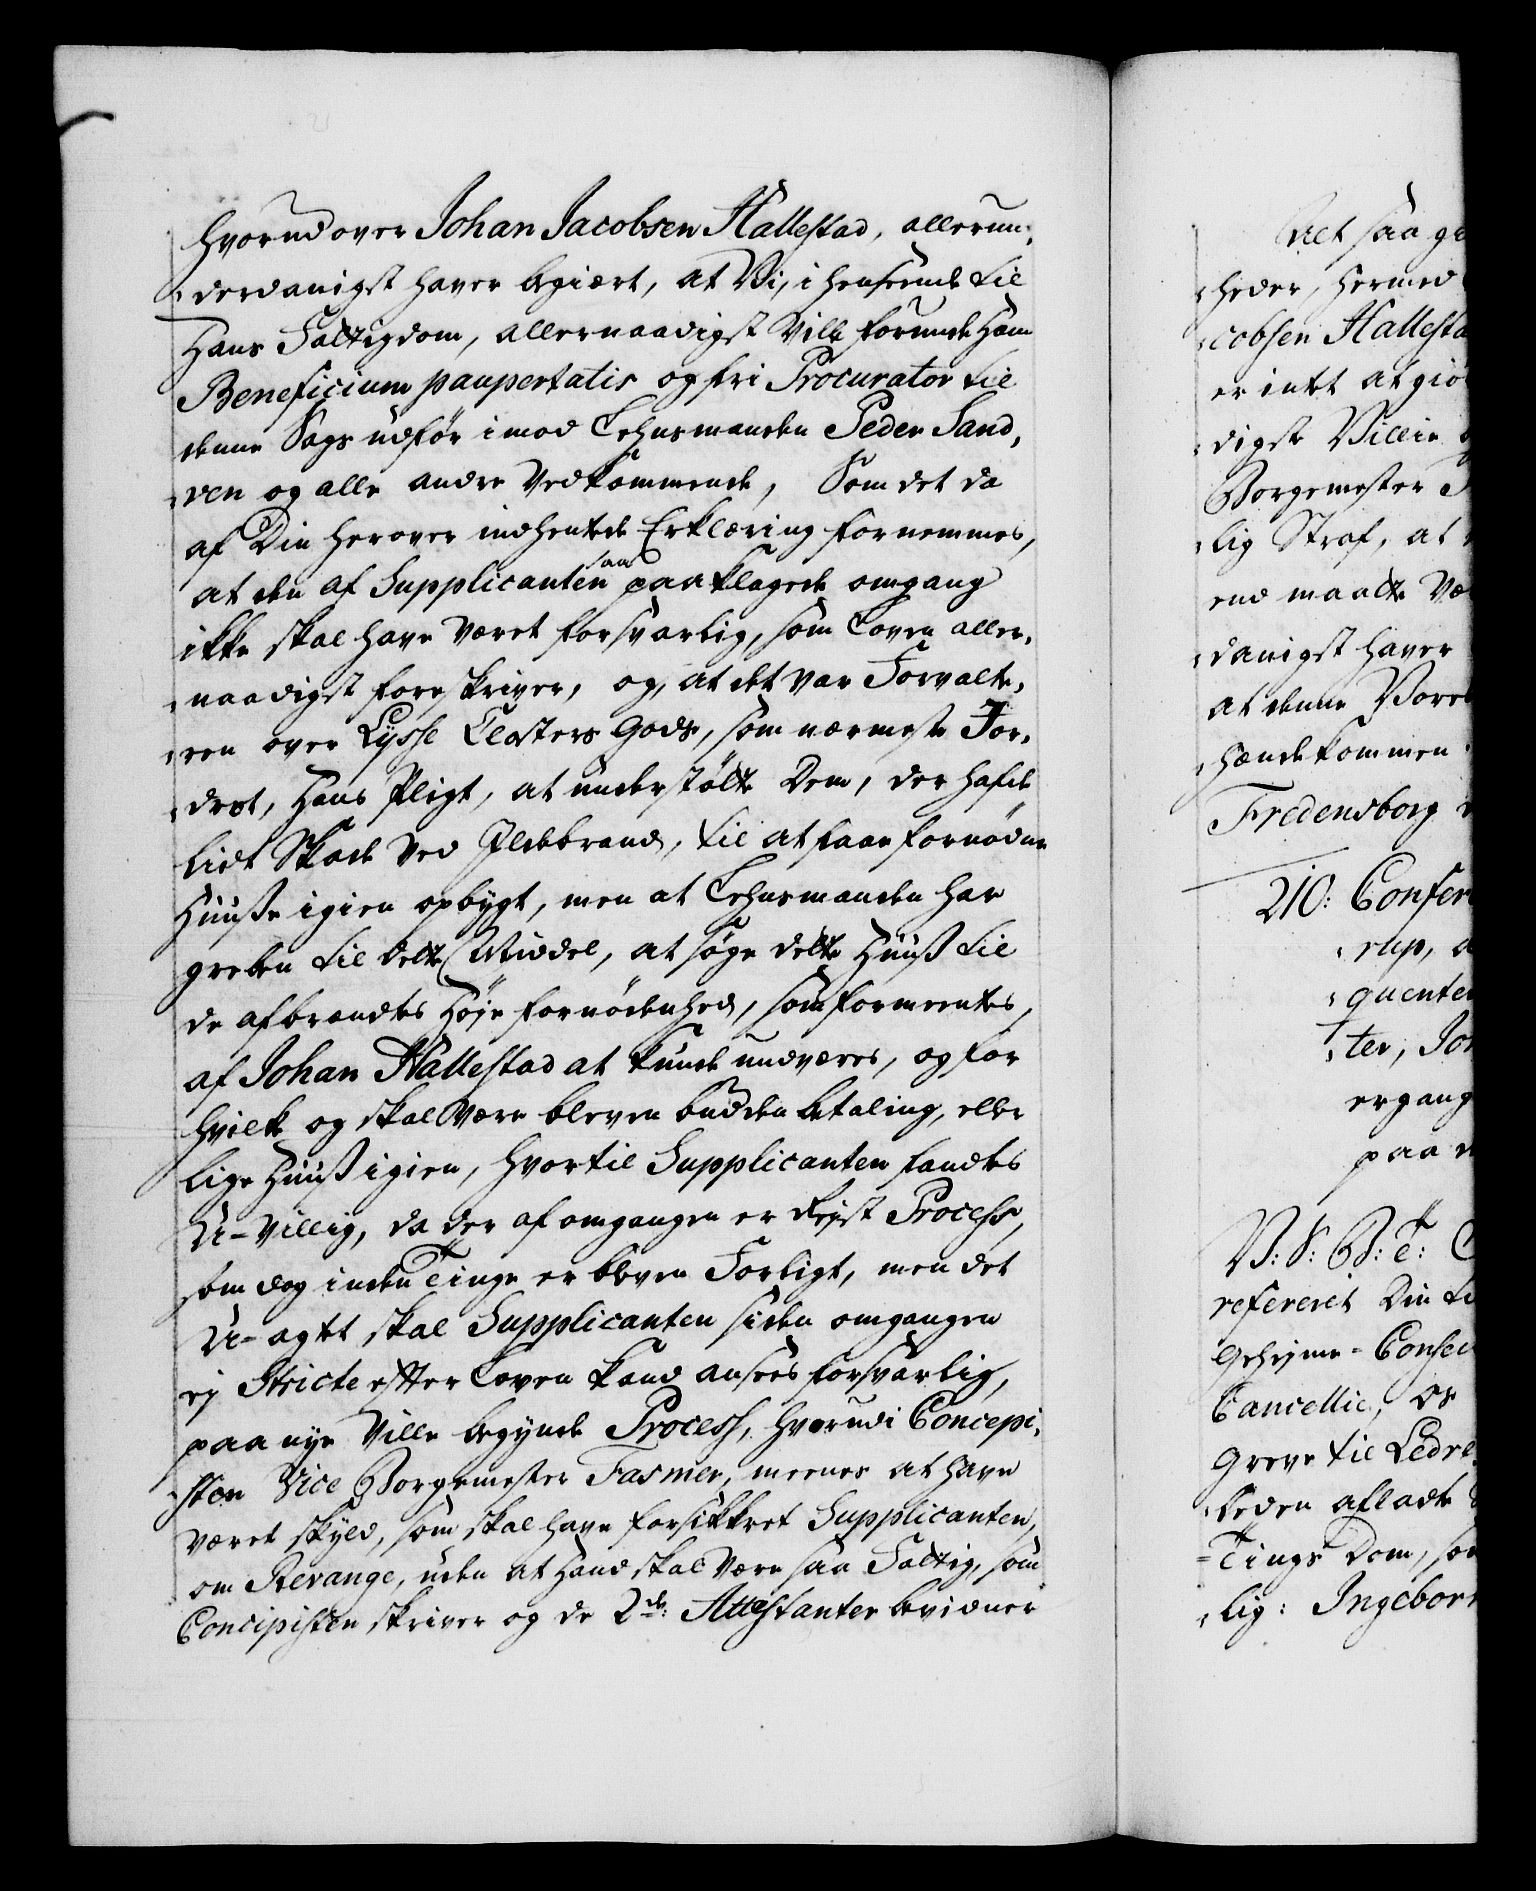 hvorudover Johan Jacobsen Hallestad, allerun-
derdanigst haver begiært, at Vi, i henseende til
Hans Fattigdom, allernaadigst Ville forunde Ham
Beneficium paupertatis og fri Procurator til
denne Sags udför imod Lehnsmanden Peder Sand,
ven og alle andre Vedkommende, Som det da
af Din herover indhentede Erklæring fornemmes,
at den af Supplicanten saa paaklagede omgang
ikke skal have Været forsvarlig, som Loven aller-
naadigst foreskriver, og, at det var Forvalte-
ren over Lysse Closters Gods, som nærmeste For-
dret, Hans Pligt, at understötte Dem, der hafde
lidt Skade Ved Ildebrand, til at faae fornødne
Huuse igien opbygt, men at Lehnsmanden har
greben til dette Middel, at søge dette Huus til
de afbrandtes Høje fornødenhed, som formeentes,
af Johan Hallestad at kunde undværes, og for
hvilket og skal Være bleven buden betaling, eller
lige Huus igien, hvortil Supplicanten fandtes
U-Villig, da der af omgangen er Reist Process,
som dog inden Tinge er bleven Forligt, men det
U-agtet skal Supplicanten siden omgangen
ej Stricte efter Loven kand ansees forsvarlig,
paa nye Ville begynde Process, hvorudi Concepi-
sten Vice Borgemester Fasmer, meenes at have
Været skyld, som skal have forsikkret Supplicanten,
om Revange, uden at Hand skal Være saa Fattig, som
Concipisten skriver og de 2de: Attestanter bevidner
Alt saa
heder, hermed
cobsen Hallesta
er intet at giø
digste Villie
Borgemester
lig Straf, at
end maatte Væ
danigst haver
at denne Vores
hænde kommen
Fredensborg
210: Confer
rup, a
quenter
ter, Joh
ergang
paa
V: S: G: T: C
refereret Din
Geheime-Conse
Cancellie, Os
Greve til Ledre
leden afladte
Tings Dom, som
lig: Ingebor